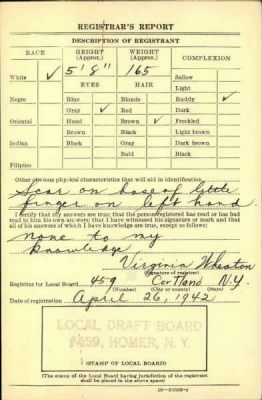 REGISTRAR'S REPORT
DESCRIPTION OF REGISTRANT
RACE HEIGHT (Approx.) WEIGHT (Approx.) COMPLEXION
White ✓ 5' 8" 165 Sallow
Light
EYES HAIR
Negro Blue Blonde Ruddy ✓
Gray ✓ Red ✓ Dark
Oriental Hazel Brown Freckled
Brown Black Light brown
Indian Black Gray Dark brown
Bald Black
Filipino
Other obvious physical characteristics that will aid in identification
Scar on base of little
finger on left hand
I certify that my answers are true; that the person registered has read or has had
read to him his own answers; that I have witnessed his signature or mark and that
all of his answers of which I have knowledge are true, except as follows:
none to my
knowledge
Virginia Wheaton
(Signature of registrar)
Registrar for Local Board 459 Cortland N.Y.
(Number) (City or county) (State)
Date of registration April 26, 1942
LOCAL DRAFT BOARD
#459, HOMER, N. Y.
(STAMP OF LOCAL BOARD)
(The stamp of the Local Board having jurisdiction of the registrant
shall be placed in the above space)